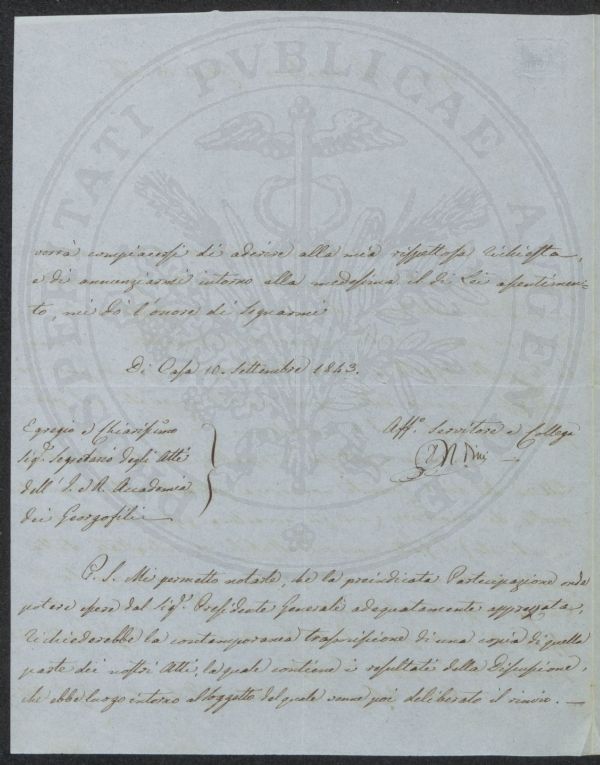 vorrà compiacersi di aderire alla mia rispettosa richiesta,
e di annunziarmi intorno alla medesima il di Lei assentimen-
to, mi dò l'onore di segnarmi
Di Casa 10. Settembre 1843.
Egregio e Chiarissimo
Sig.r Segretario degli Atti
dell' I. e R. Accademia
dei Georgofili
Aff.o Servitore e Collega
P. S. Mi permetto notarle, che la preindicata Partecipazione onde
potere essere dal Sig.r Presidente Generale adeguatamente apprezzata,
richiederebbe la contemporanea trasmissione di una copia di quella
parte dei nostri Atti, la quale contiene i resultati della Discussione,
che ebbe luogo intorno al soggetto del quale venne poi deliberato il rinvio. —
PROSPERITATI PVBLICAE AVGENDAE